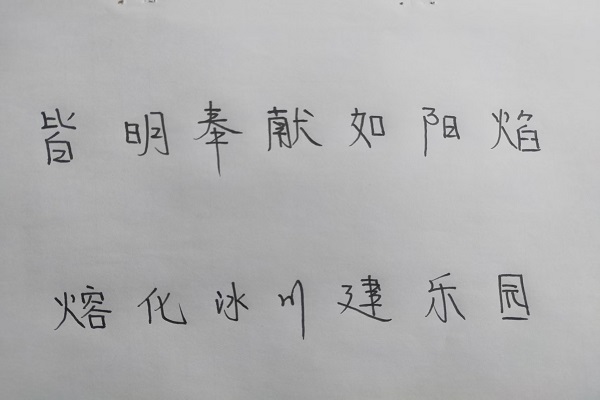 皆明奉献如阳焰
熔化冰川建乐园